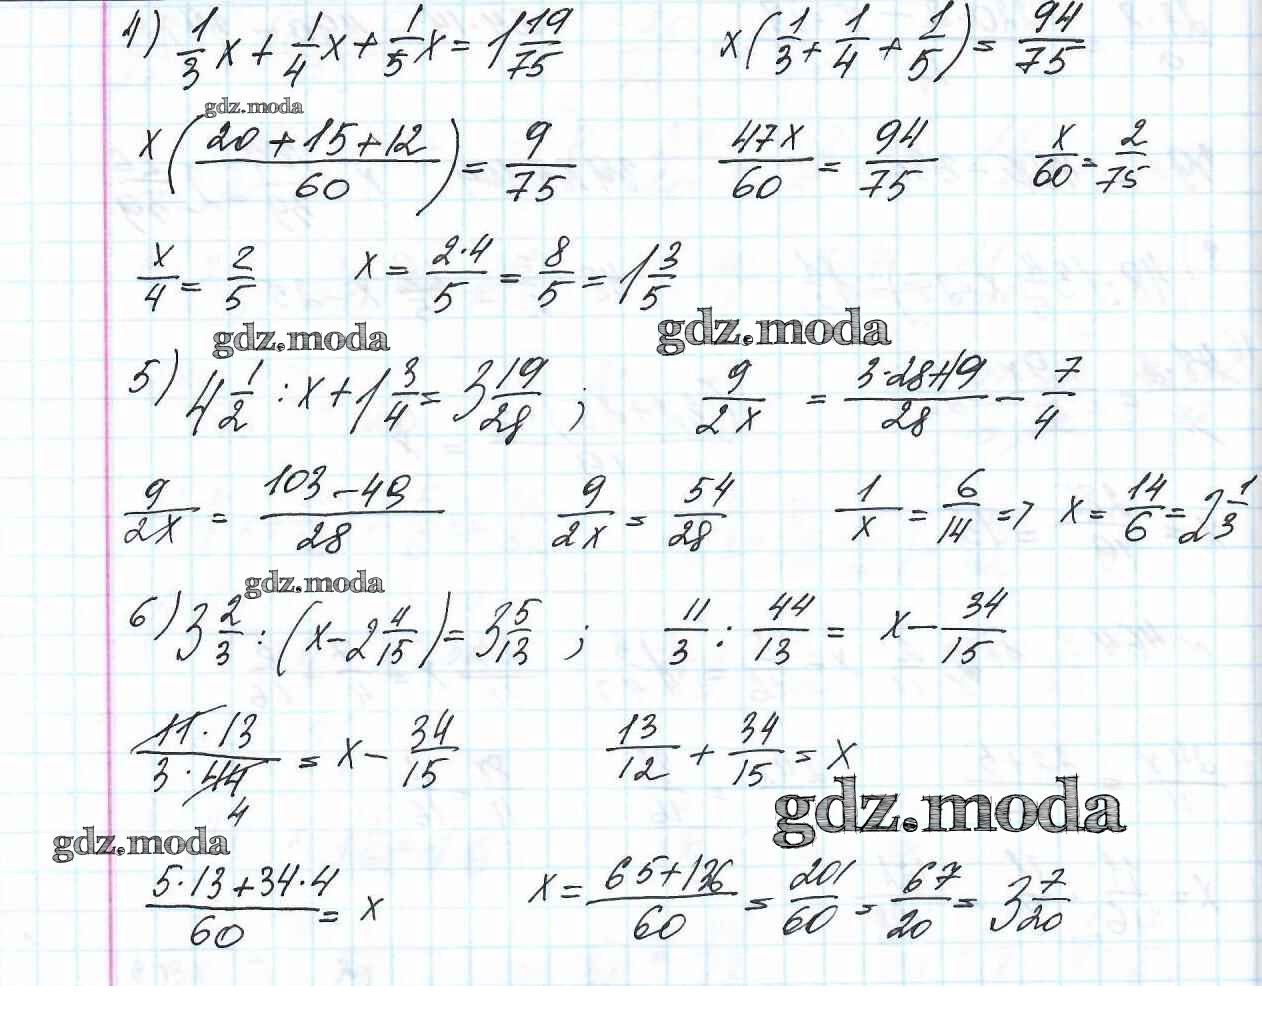 4) 1/3 x + 1/4 x + 1/5 x = 1 19/75    x(1/3 + 1/4 + 1/5) = 94/75
gdz.moda
x((20+15+12)/60) = 9/75    47x/60 = 94/75    x/60 = 2/75
x/4 = 2/5    x = 2·4/5 = 8/5 = 1 3/5
gdz.moda    gdz.moda
5) 4 1/2 : x + 1 3/4 = 3 19/28 ;    9/2x = (3·28+19)/28 − 7/4
9/2x = (103−49)/28    9/2x = 54/28    1/x = 6/14 => x = 14/6 = 2 1/3
gdz.moda
6) 3 2/3 : (x − 2 4/15) = 3 5/13 ;    11/3 : 44/13 = x − 34/15
11·13/3·44 4 = x − 34/15    13/12 + 34/15 = x
gdz.moda
gdz.moda
(5·13+34·4)/60 = x    x = (65+136)/60 = 201/60 = 67/20 = 3 7/20